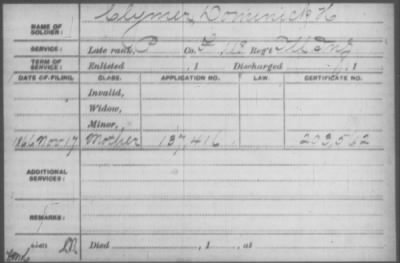 Clymer, Dominick K
NAME OF SOLDIER:
SERVICE: Late rank, P Co. F, 118 Reg't Ill Inf
TERM OF SERVICE: Enlisted , 1 Discharged , 1
DATE OF FILING. CLASS. APPLICATION NO. LAW. CERTIFICATE NO.
Invalid,
Widow,
Minor,
1866 Nov 17 Mother 137,416
ADDITIONAL SERVICES:
REMARKS:
Died , 1 , at